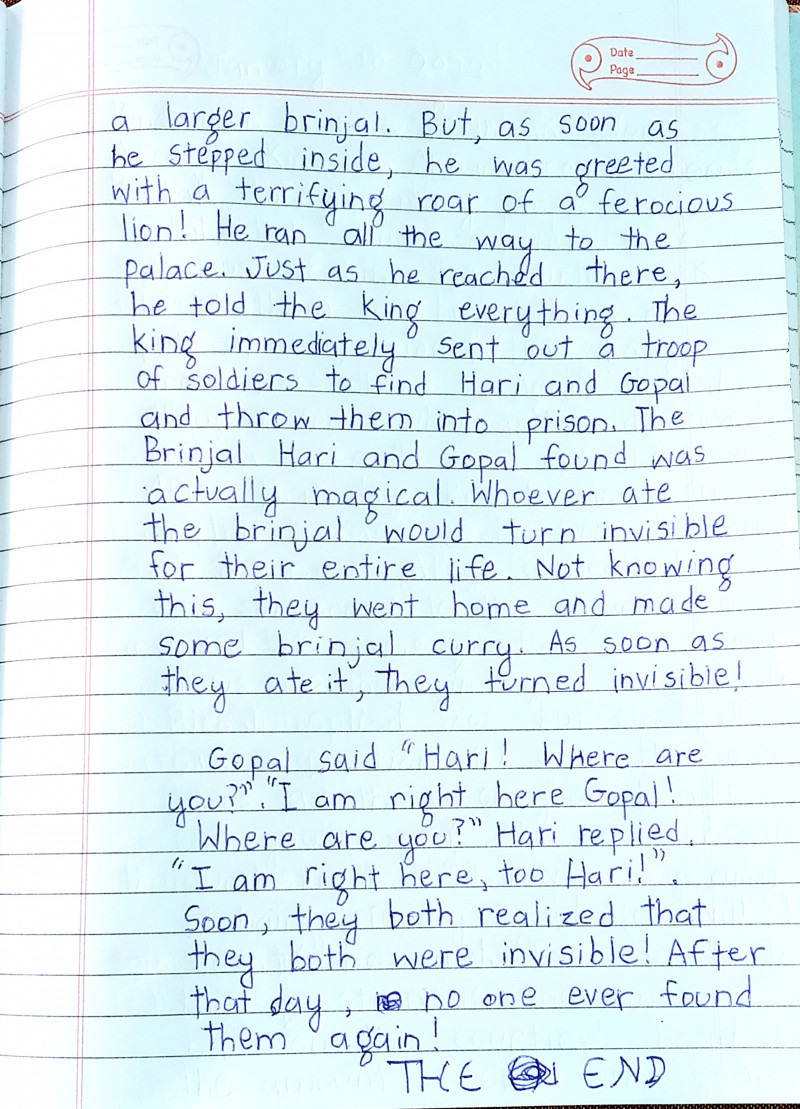 Date
Page
a larger brinjal. But, as soon as
he stepped inside, he was greeted
with a terrifying roar of a ferocious
lion! He ran all the way to the
palace. Just as he reached there,
he told the king everything. The
king immediately sent out a troop
of soldiers to find Hari and Gopal
and throw them into prison. The
Brinjal Hari and Gopal found was
actually magical. Whoever ate
the brinjal would turn invisible
for their entire life. Not knowing
this, they went home and made
some brinjal curry. As soon as
they ate it, they turned invisible!
Gopal said "Hari! Where are
you?". "I am right here Gopal!
Where are you?" Hari replied.
"I am right here, too Hari!".
Soon, they both realized that
they both were invisible! After
that day, no one ever found
them again!
THE END